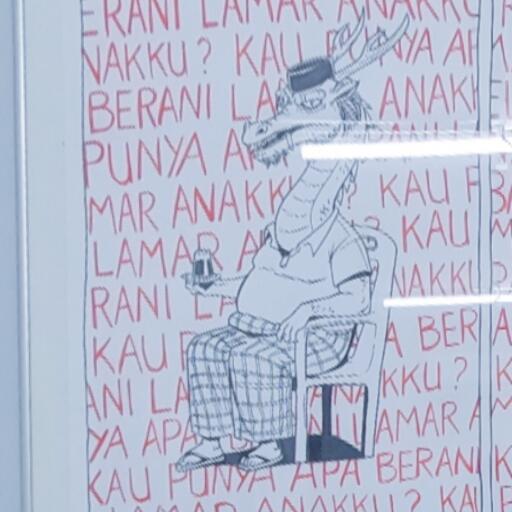 ERANI LAMAR ANAKKU
NAKKU? KAU PUNYA AP
BERANI LA ANAKK
PUNYA AP
MAR ANAKKU ? KAU P
LAMAR A ? KAU
RANI LA NAKKU
KAU P A BER
ANI LA ANA KKU?
YA APA LAMAR A
KAU PUNYA APA BERANI
LAMAR ANAKKU? KAU